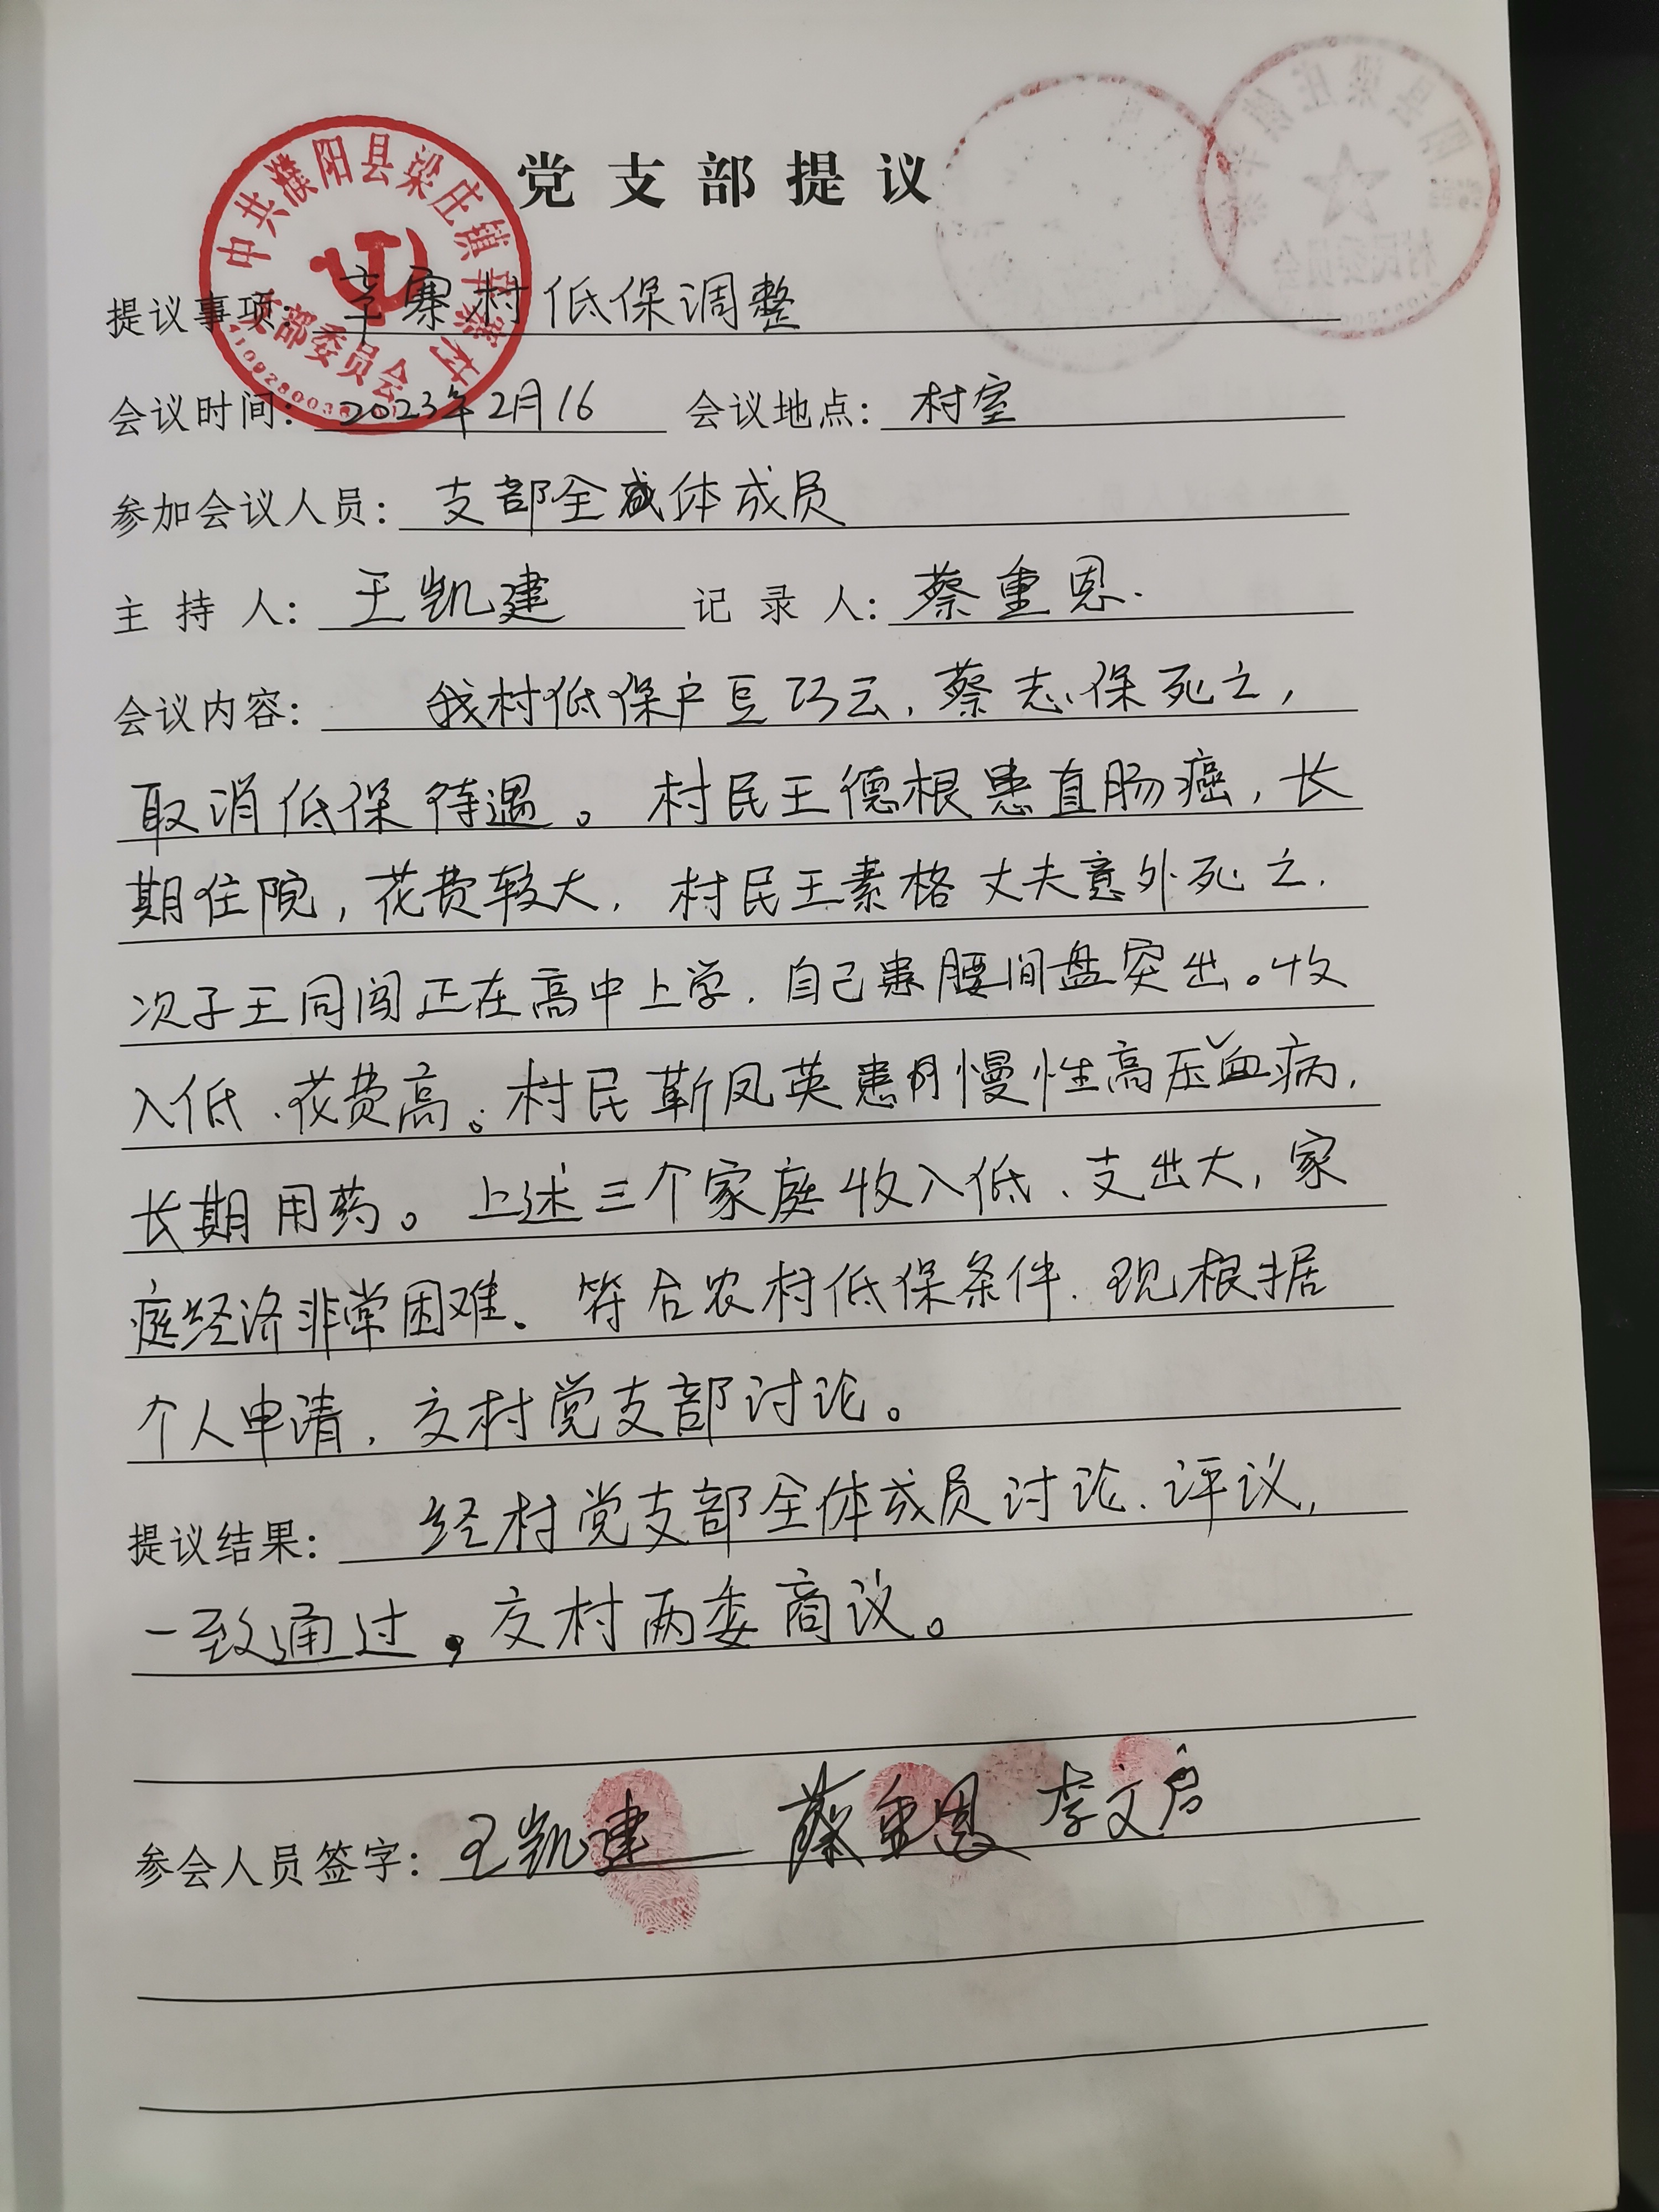 党支部提议
中共濮阳县梁庄镇辛寨村
支部委员会
提议事项: 辛寨村低保调整
会议时间: 2023年2月16 会议地点: 村室
参加会议人员: 支部全体成员
主持人: 王凯建 记录人: 蔡重恩.
会议内容: 我村低保户豆巧云,蔡志保死亡,
取消低保待遇。村民王德根患直肠癌,长
期住院,花费较大,村民王素格丈夫意外死亡.
次子王同闯正在高中上学.自己患腰间盘突出。收
入低、花费高。村民靳凤英患慢性高压血病,
长期用药。上述三个家庭收入低、支出大,家
庭经济非常困难。符合农村低保条件.现根据
个人申请,交村党支部讨论。
提议结果: 经村党支部全体成员讨论、评议,
一致通过,交村两委商议。
参会人员签字: 王凯建 蔡重恩 李文启